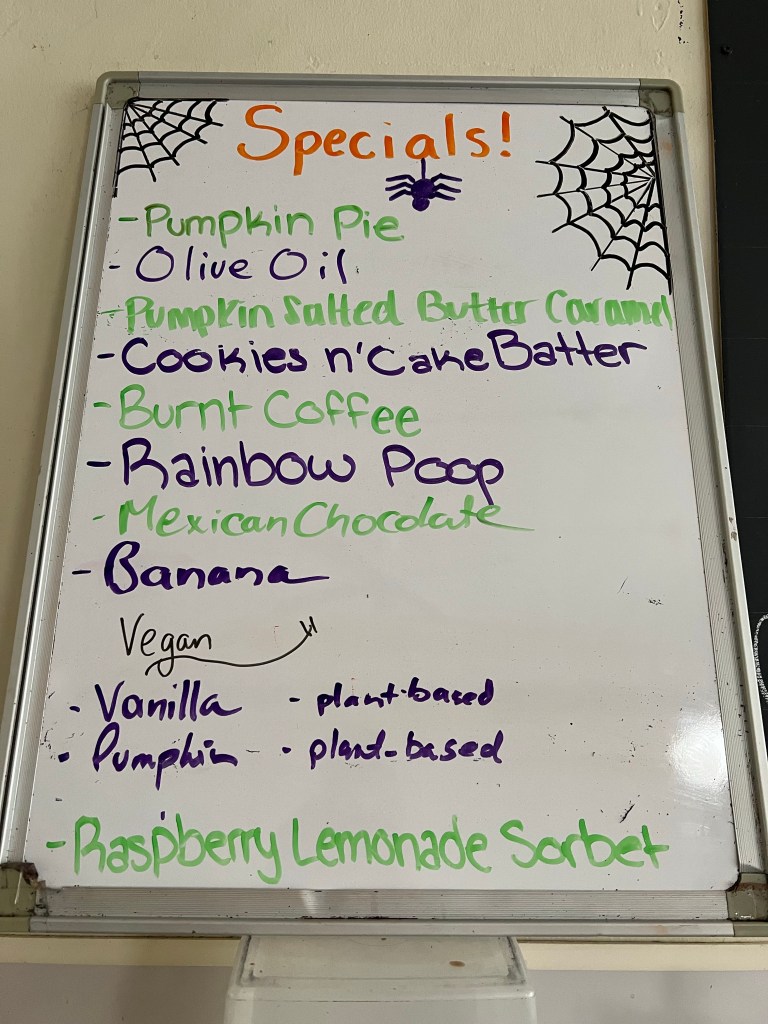 Specials!
- Pumpkin Pie
- Olive Oil
- Pumpkin Salted Butter Caramel
- Cookies n' Cake Batter
- Burnt Coffee
- Rainbow Poop
- Mexican Chocolate
- Banana
Vegan
- Vanilla - plant-based
- Pumpkin - plant-based
- Raspberry Lemonade Sorbet